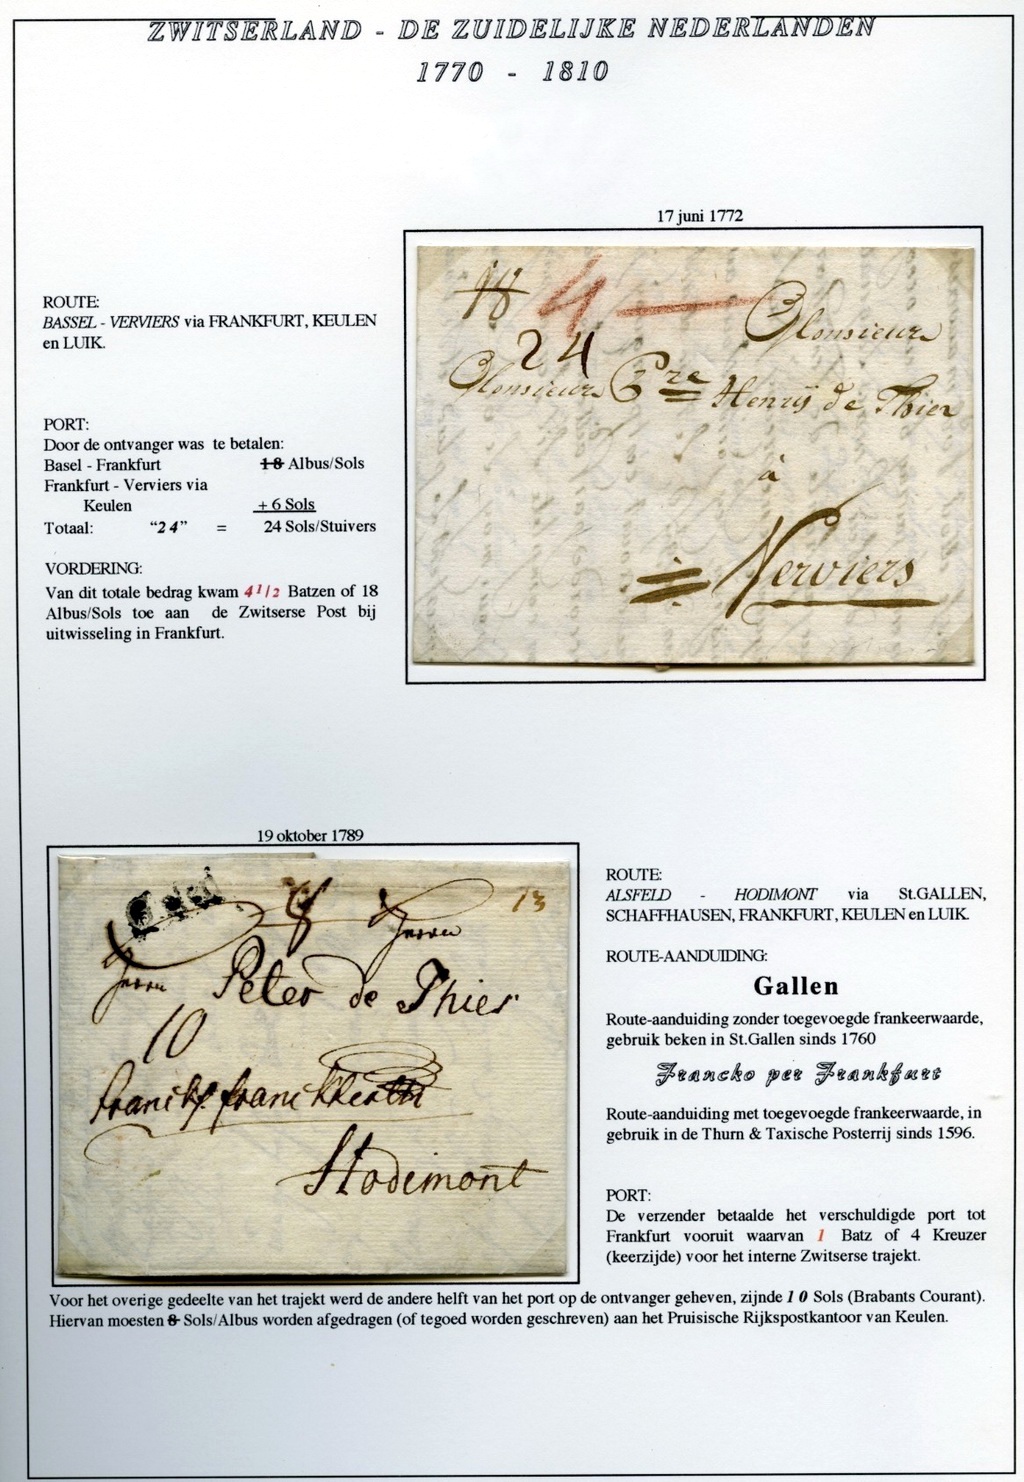 ZWITSERLAND - DE ZUIDELIJKE NEDERLANDEN
1770 - 1810
17 juni 1772
ROUTE:
BASSEL - VERVIERS via FRANKFURT, KEULEN
en LUIK.
PORT:
Door de ontvanger was te betalen:
Basel - Frankfurt 18 Albus/Sols
Frankfurt - Verviers via
Keulen + 6 Sols
Totaal: "24" = 24 Sols/Stuivers
VORDERING:
Van dit totale bedrag kwam 4 1/2 Batzen of 18
Albus/Sols toe aan de Zwitserse Post bij
uitwisseling in Frankfurt.
18 4
24 Monsieur
Monsieur Pre Henrÿ de Thier
à
Verviers
19 oktober 1789
8 13
Herrn
Herrn Peter de Thier
10
Hodimont
ROUTE:
ALSFELD - HODIMONT via St.GALLEN,
SCHAFFHAUSEN, FRANKFURT, KEULEN en LUIK.
ROUTE-AANDUIDING:
Gallen
Route-aanduiding zonder toegevoegde frankeerwaarde,
gebruik beken in St.Gallen sinds 1760
Francko per Frankfurt
Route-aanduiding met toegevoegde frankeerwaarde, in
gebruik in de Thurn & Taxische Posterrij sinds 1596.
PORT:
De verzender betaalde het verschuldigde port tot
Frankfurt vooruit waarvan 1 Batz of 4 Kreuzer
(keerzijde) voor het interne Zwitserse trajekt.
Voor het overige gedeelte van het trajekt werd de andere helft van het port op de ontvanger geheven, zijnde 10 Sols (Brabants Courant).
Hiervan moesten 8 Sols/Albus worden afgedragen (of tegoed worden geschreven) aan het Pruisische Rijkspostkantoor van Keulen.